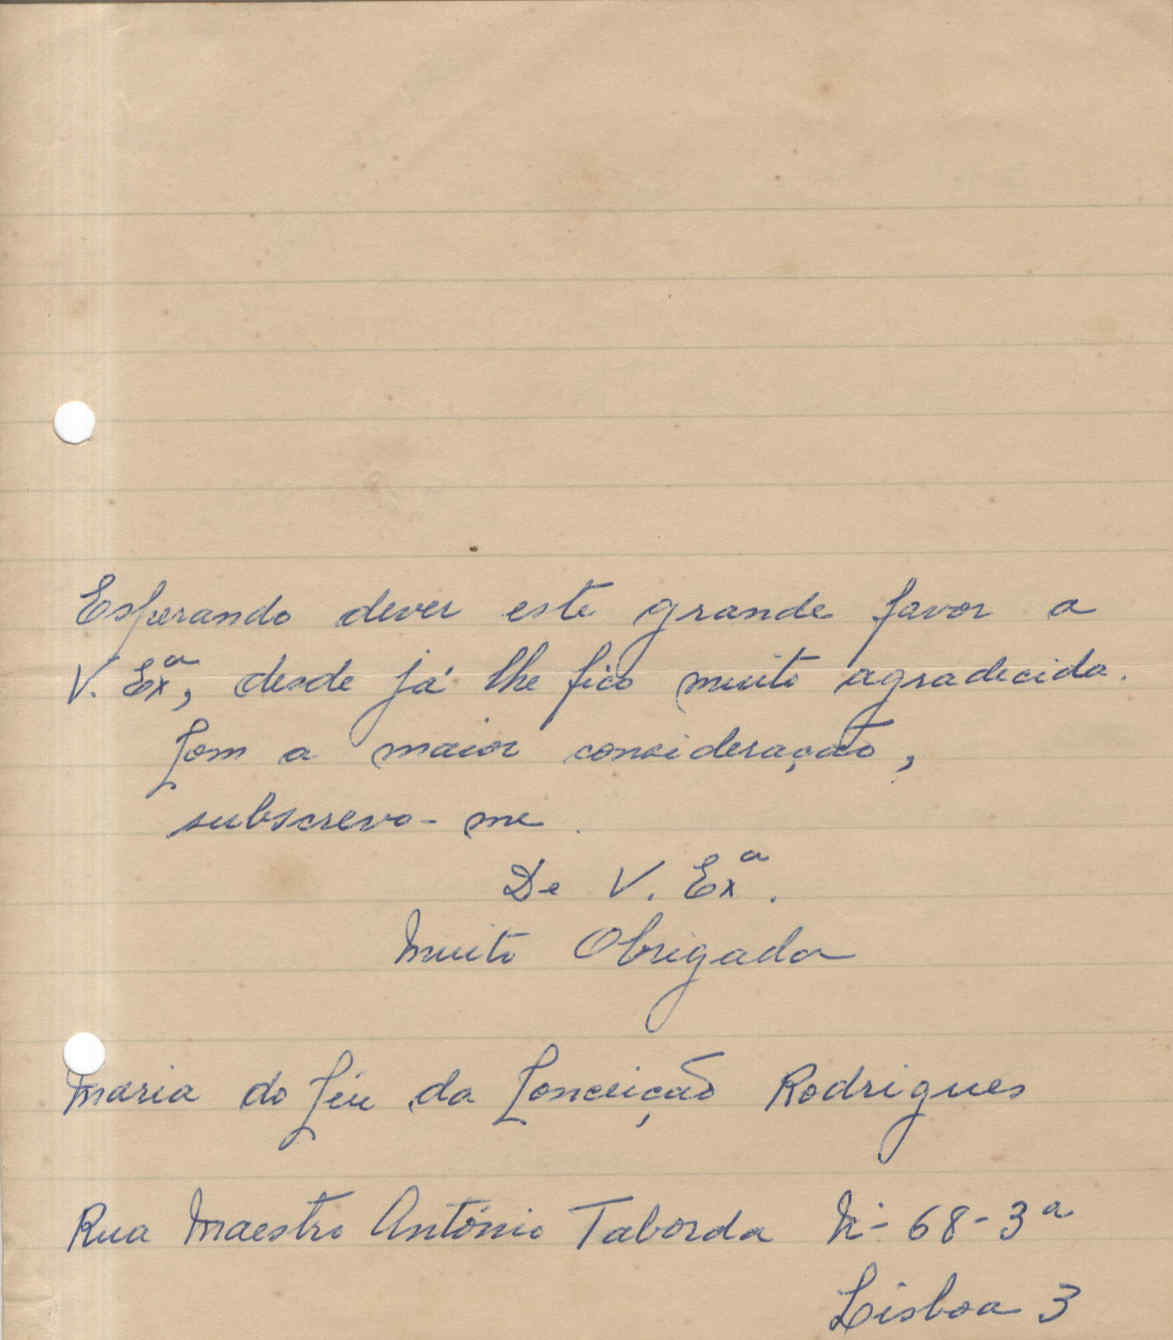 Esperando dever este grande favor a
V. Exª, desde já lhe fico muito agradecida.
Com a maior consideração,
subscrevo-me
De V. Exª.
Muito Obrigada
Maria do Céu da Conceição Rodrigues
Rua Maestro António Taborda Nº- 68-3ª
Lisboa 3